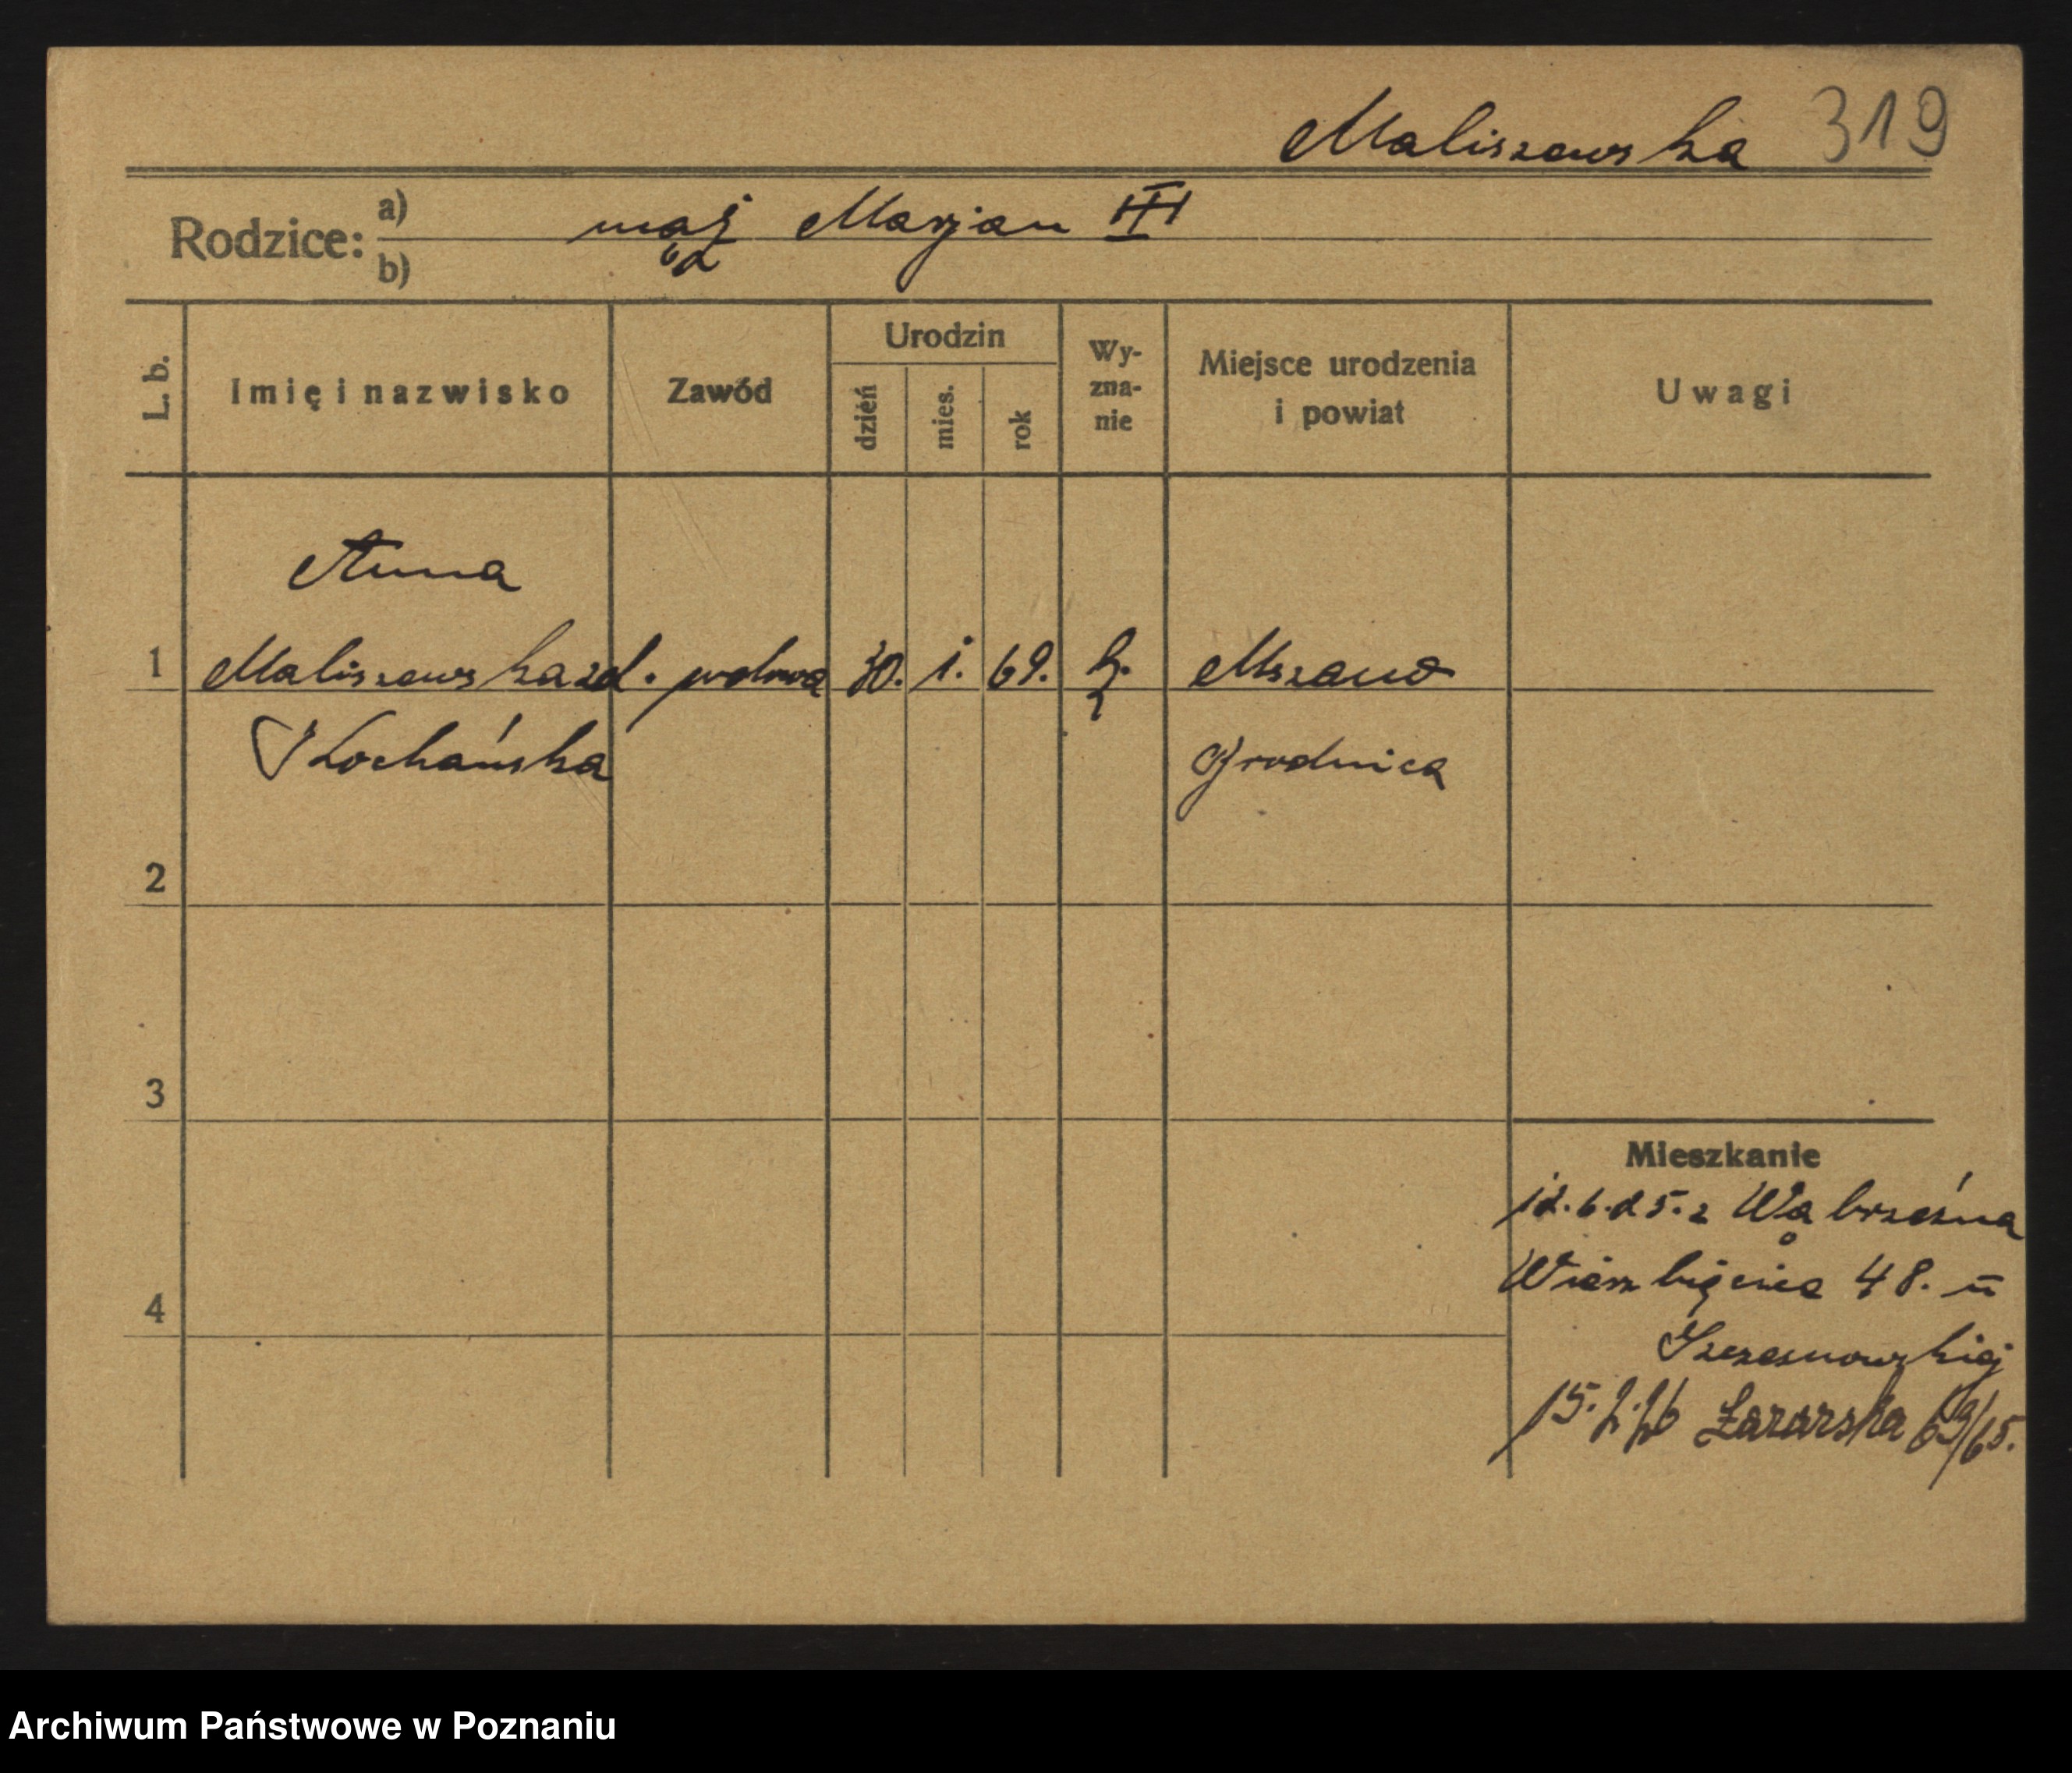 Maliszewska 319
Rodzice: a) mąż Marjan III
b)
L. b.
Imię i nazwisko
Zawód
Urodzin
dzień
mies.
rok
Wy-
zna-
nie
Miejsce urodzenia
i powiat
Uwagi
Anna
1 Maliszewska zd. wdowa 30. 1. 69. k. Mszano
Kochańska Brodnica
2
3
4
Mieszkanie
12.6.25. z Wąbrzeźna
Wierzbięcice 48. II
Szczesnowskiej
15. 2. 26 Łazarska 63/65.
Archiwum Państwowe w Poznaniu